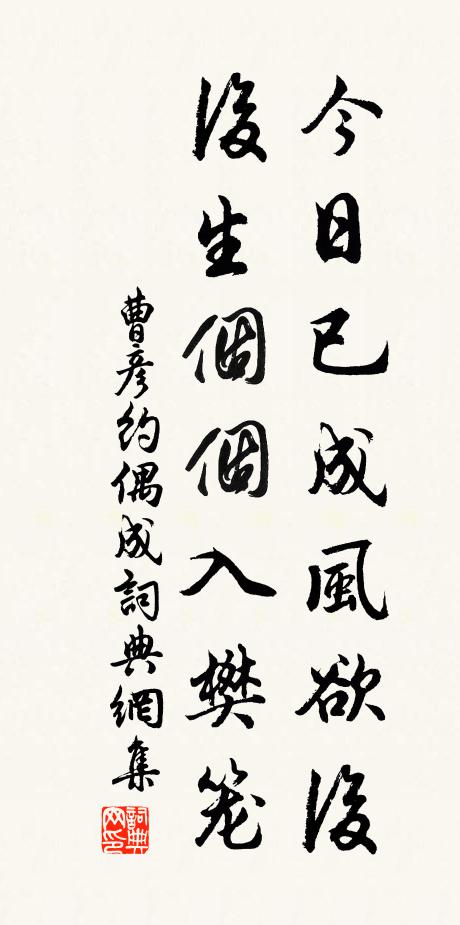 今日已成風欲後
後生個個入樊笼
曹彥約偶成詞典網集
詞典
网印